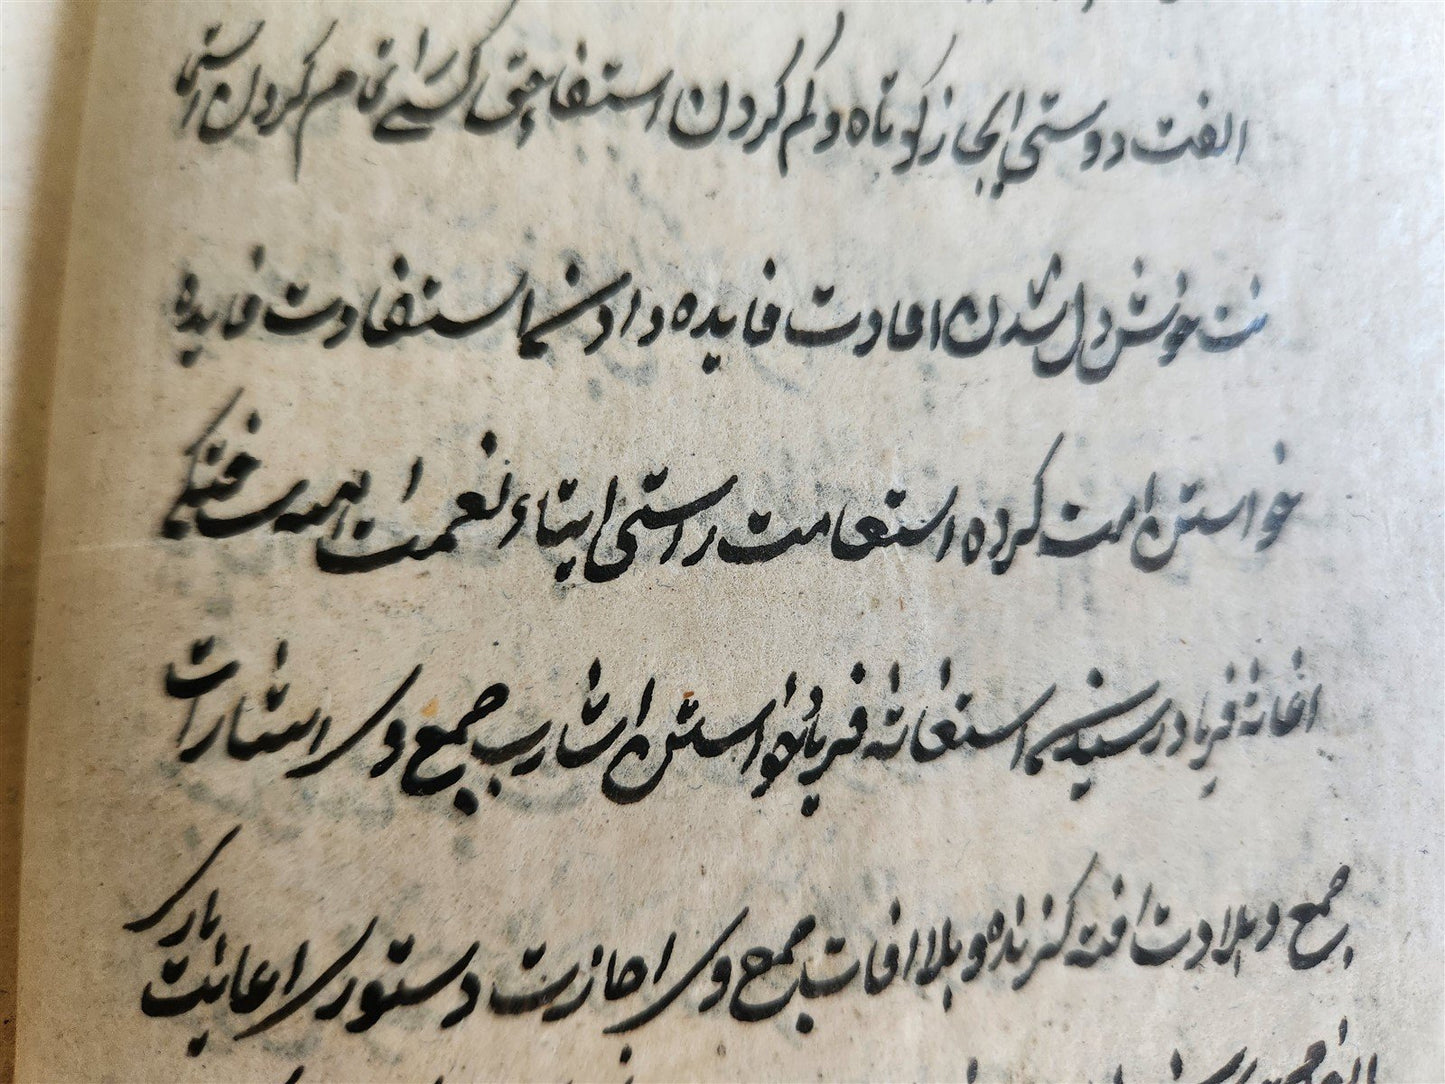 الفت دوستی ایجاز کوتاه و کم کردن استیفا حق کسی را تمام کردن استما
لت خوش دل شدن افادت فایده دادن استفادت فایده
خواستن امت کرده استقامت راستی ابتاء نعمت ابهت
اغاثه فریاد رسیدن استغاثه فریاد خواستن اشارت جمع وی اشارات
جمع و بلا دت افت گزنده و بلا افات جمع وی اجازت دستوری اعانت یاری